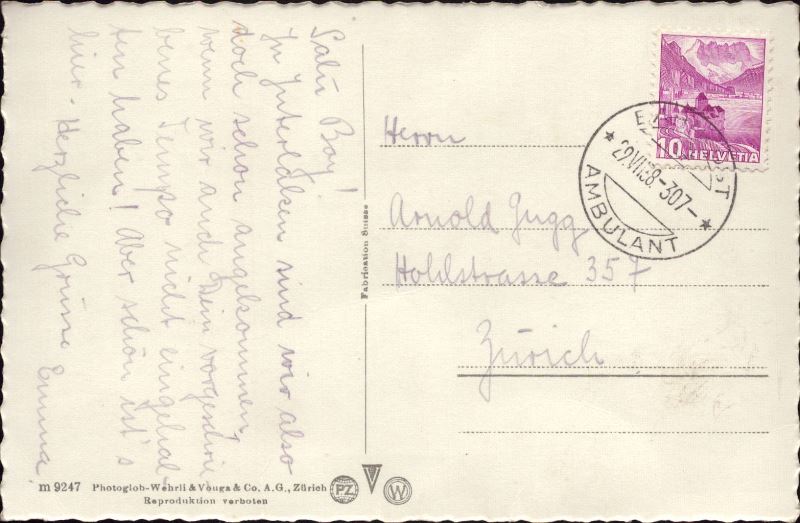 Salü Boy!
In Interlaken sind wir also
doch schon angekommen,
wenn wir auch Dein vorgeschrie-
benes Tempo nicht eingehal-
ten haben! Aber schön ist's
hier. Herzliche Grüsse Emma
Herrn
Arnold Gugg
Hohlstrasse 357
Zürich
Fabrication Suisse
10 HELVETIA
AMBULANT
29.VII.38.-307-
m 9247 Photoglob-Wehrli & Vouga & Co. A.G., Zürich
Reproduktion verboten
PZ
W